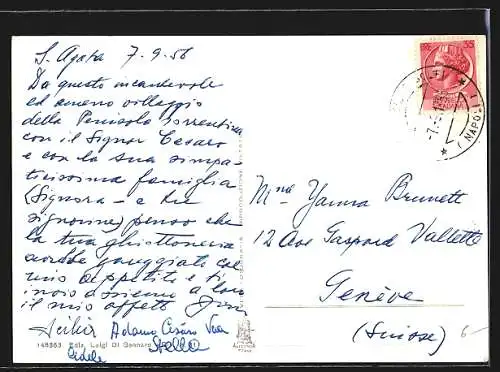 S. Agata 7-9-56
Da questo incantevole
ed ameno villaggio
della Penisola Sorrentina
con il Signor Cesaro
e con la sua simpa-
ticissima famiglia
(Signora - e tre
signorine) penso che
la tua ghiottoneria
avrebbe gareggiato col
mio appetito e ti
invio assieme a loro
il mio affetto
Adamo Cesàro
Stella
148363 Ediz. Luigi Di Gennaro
35
NAPOLI
Mme Yanna Brunett
12 Ave Gaspard Vallette
Genève
(Suisse)